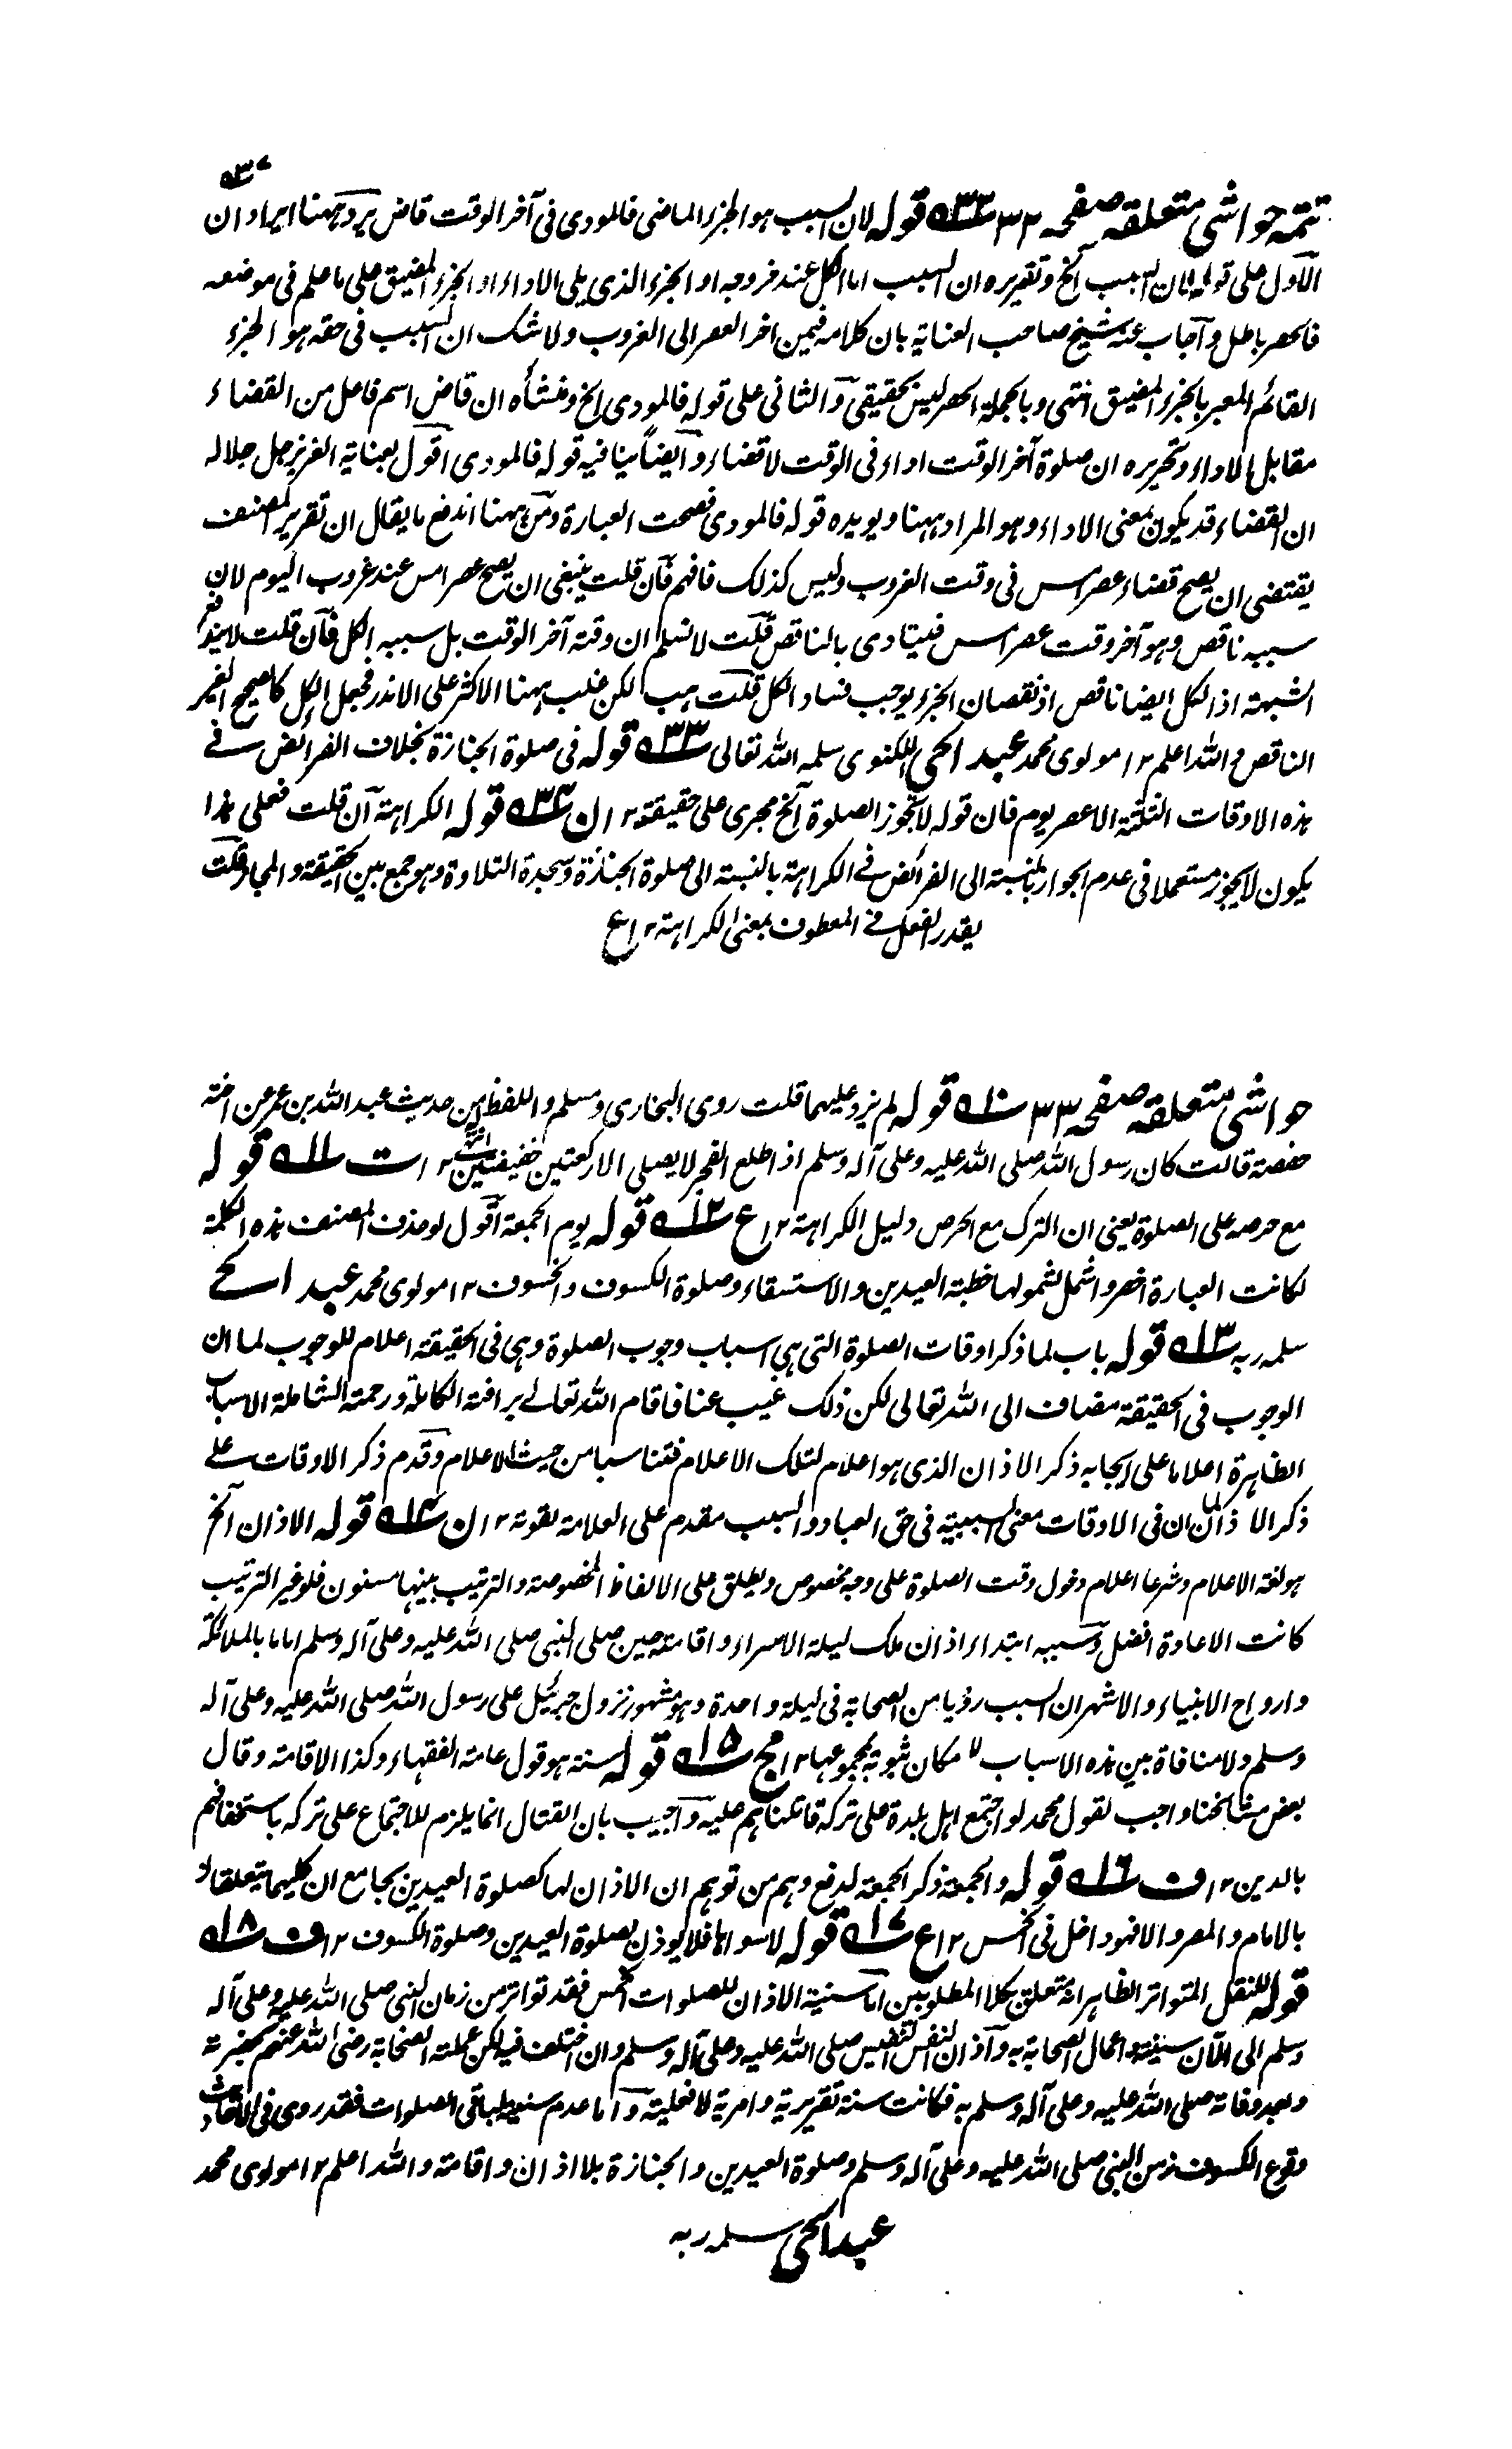 ۵۳۷
تتمہ حواشی متعلقہ صفحہ ۳۲ ۳۳ قولہ لان السبب ہو الجزء الماضی فالمودی فی آخر الوقت قاض یرد ہہنا ایراد ان
الاول علی قولہ لان السبب الخ وتقریرہ ان السبب اما الکل عند خروجہ او الجزء الذی یلی الاداء او الجزء المضیق علی ما علم فی موضعہ
فالحصر باطل وآجاب عنہ شیخ صاحب العنایۃ بان کلامہ فیمن اخر العصر الی الغروب ولا شک ان السبب فی حقہ ہو الجزء
القائم المعبر بالجزء المضیق انتہی وبالجملۃ الحصر لیس بحقیقی والثانی علی قولہ فالمودی الخ ومنشأہ ان قاض اسم فاعل من القضاء
مقابل الاداء وتحریرہ ان صلوۃ آخر الوقت اداء فی الوقت لا قضاء وآیضاً ینافیہ قولہ فالمودی آقول بعنایۃ العزیز جل جلالہ
ان القضاء قد یکون بمعنی الاداء وہو المراد ہہنا ویویدہ قولہ فالمودی فصحت العبارۃ ومن ہہنا اندفع ما یقال ان تقریر المصنف
یقتضی ان یصح قضاء عصر امس فی وقت الغروب ولیس کذلک فافہم فآن قلت ینبغی ان یصح عصر امس عند غروب الیوم لان
سببہ ناقص وہو آخر وقت عصر امس فیتادی بالناقص قلت لا نسلم ان وقتہ آخر الوقت بل سببہ الکل فآن قلت لا یندفع
الشبہۃ اذ الکل ایضا ناقص اذ نقصان الجزء یوجب فساد الکل قلت ہب لکن غلب ہہنا الاکثر علی الاندر فجعل الکل کالصحیح الغیر
الناقص واللہ اعلم ۱۲ مولوی محمد عبد الحی اللکنوی سلمہ اللہ تعالی ۳۳ قولہ فی صلوۃ الجنازۃ بخلاف الفرائض فی
ہذہ الاوقات الثلثۃ الا عصر یوم فان قولہ لا تجوز الصلوۃ الخ مجری علی حقیقتہ ۱۲ ن ۳۴ قولہ الکراہۃ آن قلت فعلی ہذا
یکون لا یجوز مستعملا فی عدم الجواز بالنسبۃ الی الفرائض فی الکراہۃ بالنسبۃ الی صلوۃ الجنازۃ وسجدۃ التلاوۃ وہو جمع بین الحقیقۃ والمجاز قلت
یقدر الفعل فی المعطوف بمعنی الکراہۃ ۱۲ ع
حواشی متعلقہ صفحہ ۳۳ ۱۰ قولہ لم یزد علیہما قلت روی البخاری ومسلم واللفظ من حدیث عبد اللہ بن عمر عن اختہ
حفصۃ قالت کان رسول اللہ صلی اللہ علیہ وعلی آلہ وسلم اذا طلع الفجر لا یصلی الا رکعتین خفیفتین ۱۲ ت ۱۱ قولہ
مع حرصہ علی الصلوۃ یعنی ان الترک مع الحرص دلیل الکراہۃ ۱۲ ع ۱۲ قولہ یوم الجمعۃ آقول لو حذف المصنف ہذہ الکلمۃ
لکانت العبارۃ اخصر واشمل لشمولہا خطبۃ العیدین والاستسقاء وصلوۃ الکسوف والخسوف ۱۲ مولوی محمد عبد الحی
سلمہ ربہ ۱۳ قولہ باب لما ذکر اوقات الصلوۃ التی ہی اسباب وجوب الصلوۃ وہی فی الحقیقۃ اعلام للوجوب لما ان
الوجوب فی الحقیقۃ مضاف الی اللہ تعالی لکن ذلک غیب عنا فاقام اللہ تعالے برافتہ الکاملۃ ورحمتہ الشاملۃ الاسباب
الظاہرۃ اعلاما علی ایجابہ ذکر الاذان الذی ہو اعلام لتلک الاعلام فتناسبا من حیث الاعلام وقدم ذکر الاوقات علے
ذکر الاذان لما ان فی الاوقات معنی السببیۃ فی حق العباد والسبب مقدم علی العلامۃ لقوتہ ۱۲ ن ۱۴ قولہ الاذان الخ
ہو لغۃ الاعلام وشرعا اعلام دخول وقت الصلوۃ علی وجہ مخصوص ویطلق علی الالفاظ المخصوصۃ والترتیب بینہا مسنون فلو غیر الترتیب
کانت الاعادۃ افضل وسببہ ابتداء اذان ملک لیلۃ الاسراء واقامتہ حین صلی النبی صلی اللہ علیہ وعلی آلہ وسلم اماما بالملائکۃ
وارواح الانبیاء والاشہر ان السبب رؤیا من الصحابۃ فی لیلۃ واحدۃ وہو مشہور نزول جبرئیل علی رسول اللہ صلی اللہ علیہ وعلی آلہ
وسلم ولا منافاۃ بین ہذہ الاسباب لامکان ثبوتہ بمجموعہا ۱۲ مج ۱۵ قولہ سنۃ ہو قول عامۃ الفقہاء وکذا الاقامۃ وقال
بعض مشائخنا واجب لقول محمد لو اجتمع اہل بلدۃ علی ترکہ قاتلناہم علیہ وآجیب بان القتال انما یلزم للاجتماع علی ترکہ باستخفافہم
بالدین ۱۲ ف ۱۶ قولہ والجمعۃ ذکر الجمعۃ لدفع وہم من توہم ان الاذان لہا کصلوۃ العیدین بجامع ان کلیہما یتعلقان
بالامام والمصر والا فہو داخل فی الخمس ۱۲ ع ۱۷ قولہ لا سواہا فلا یوذن لصلوۃ العیدین وصلوۃ الکسوف ۱۲ ف ۱۸
قولہ للنقل المتواتر الظاہر انہ متعلق بکلا المطلوبین آما سنیۃ الاذان للصلوات الخمس فقد تواتر من زمان النبی صلی اللہ علیہ وعلی آلہ
وسلم الی الآن سنیتہ واعمال الصحابۃ بہ وآذان النفس النفیس صلی اللہ علیہ وعلی آلہ وسلم وان اختلف فیہ لکن عملتہ الصحابۃ رضی اللہ عنہم بحضرتہ
وبعد وفاتہ صلی اللہ علیہ وعلی آلہ وسلم بہ فکانت سنۃ تقریریۃ وامریۃ لا فعلیۃ وآما عدم سنیتہ لباقی الصلوات فقد روی فی الاحادیث
وقوع الکسوف زمن النبی صلی اللہ علیہ وعلی آلہ وسلم وصلوۃ العیدین والجنازۃ بلا اذان واقامۃ واللہ اعلم ۱۲ مولوی محمد
عبد الحی سلمہ ربہ